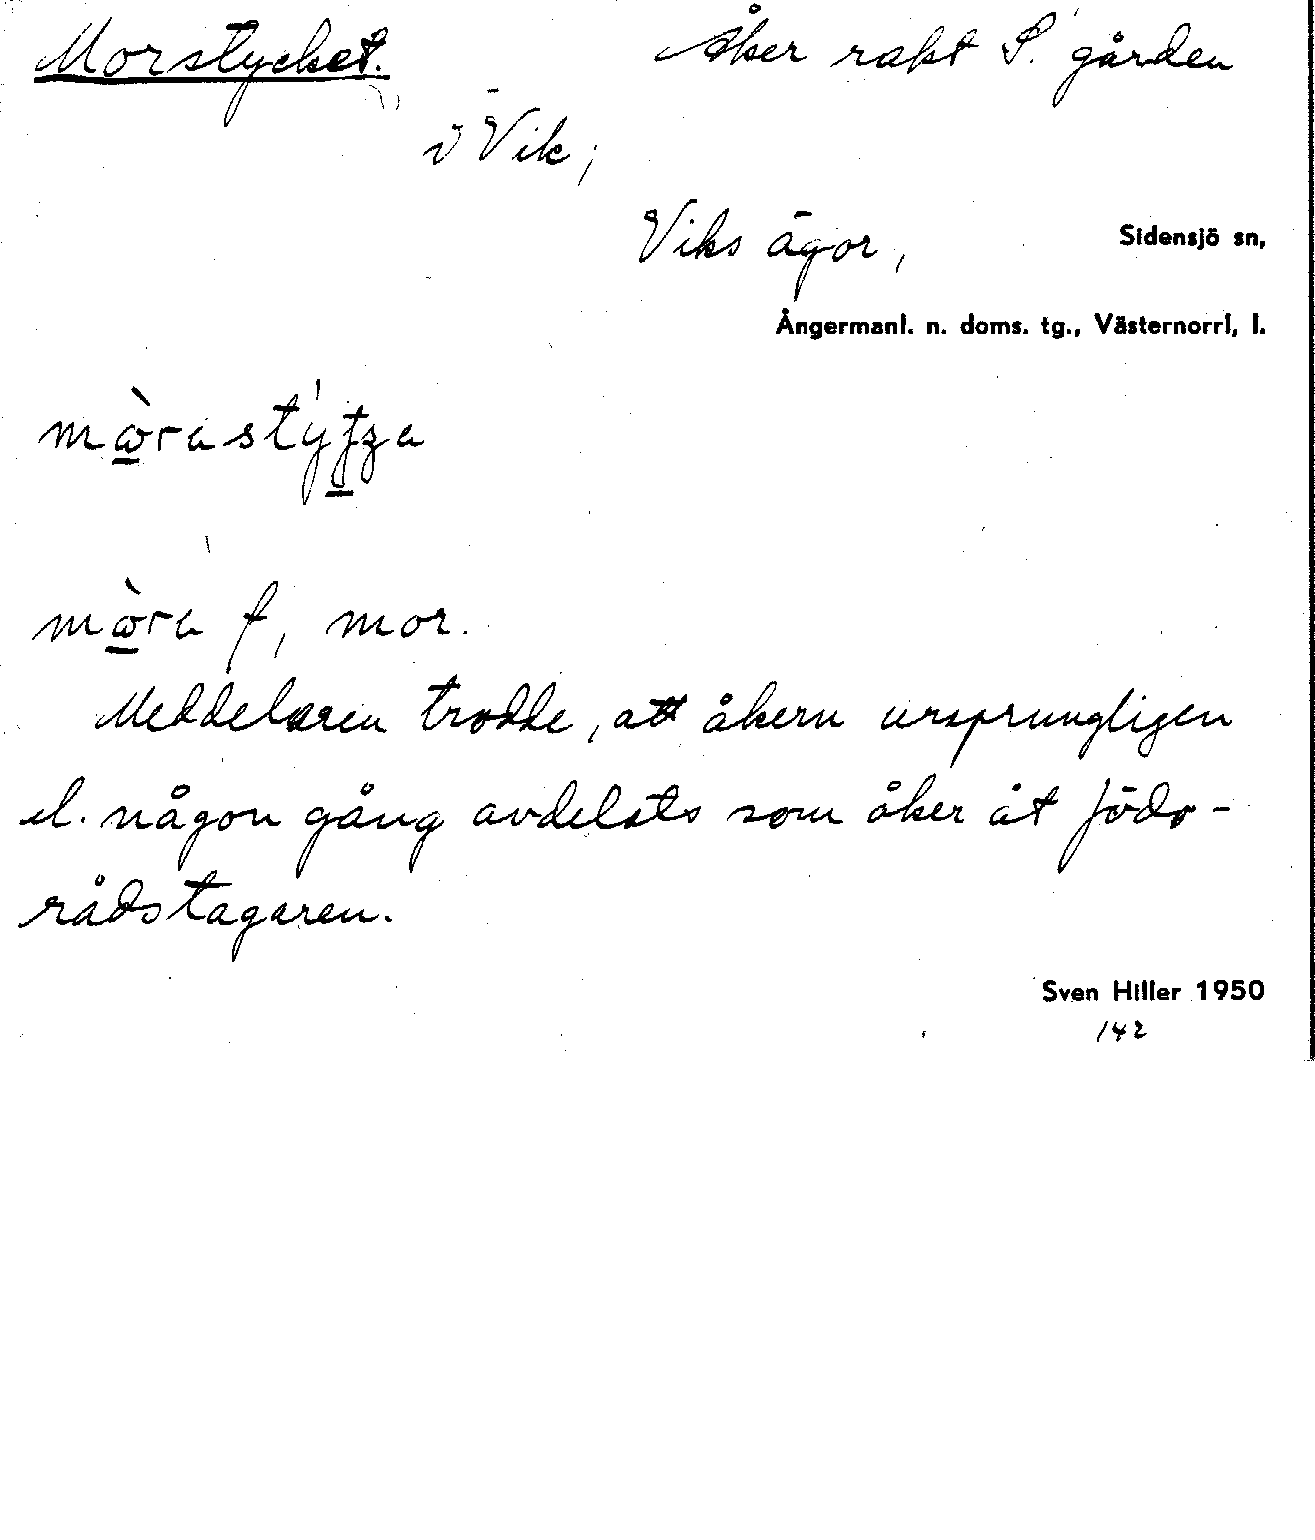 Morstycket.	Åker rakt S. gården
i Vik;
Viks ägor,	Sidensjö sn,
Ångermanl. n. doms. tg., Västernorrl, l.
f, mor.
Meddelaren trodde, att åkern ursprungligen
el. någon gång avdelats som åker åt födo-
rådstagaren.
Sven Hiller 1950
142